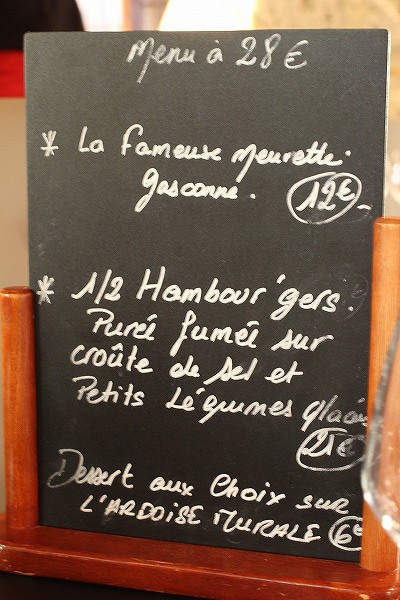 Menu à 28 €
* La fameuse meurette.
gasconne. 12€
* 1/2 Hambour'gers.
Purée fumée sur
croûte de sel et
Petits légumes glacés
21€
Dessert aux choix sur
L'ARDOISE MURALE 6€